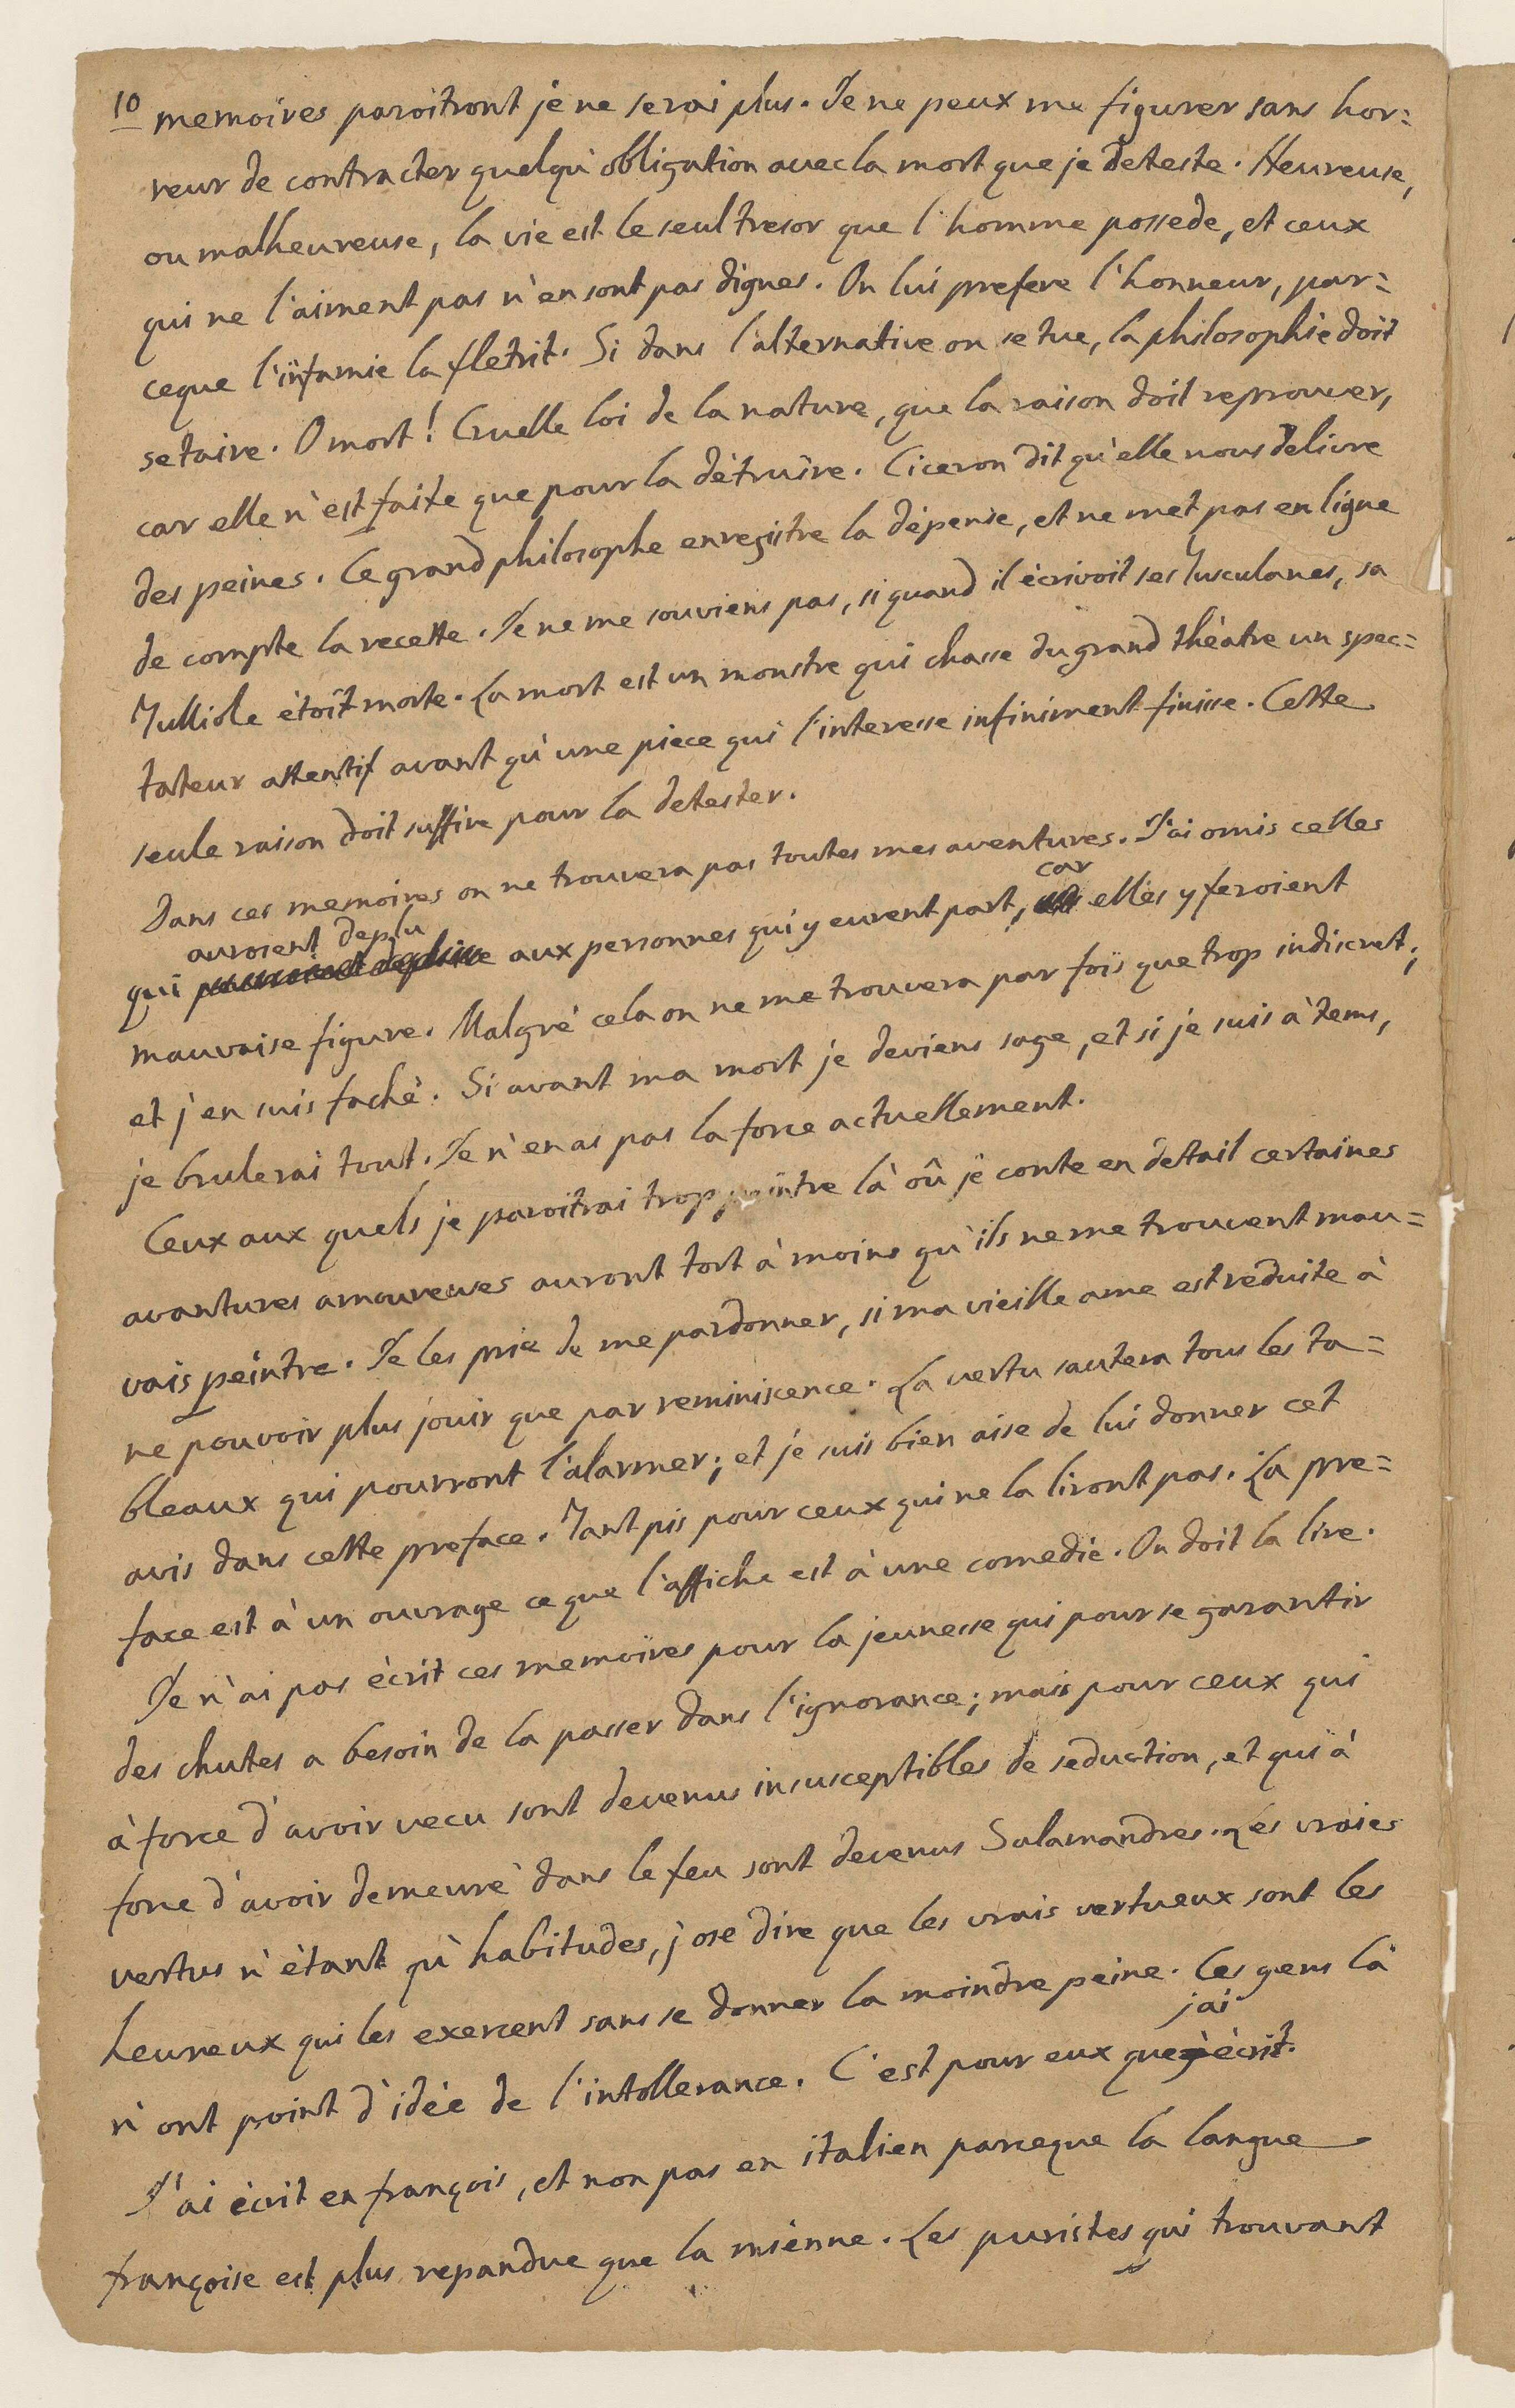 10
memoires paroitront je ne serai plus. Je ne peux me figurer sans hor=
reur de contracter quelqu'obligation avec la mort que je deteste. Heureuse,
ou malheureuse, la vie est le seul tresor que l'homme possede, et ceux
qui ne l'aiment pas n'en sont pas dignes. On lui prefere l'honneur, par=
ceque l'infamie la fletrit. Si dans l'alternative on se tue, la philosophie doit
se taire. O mort! Cruelle loi de la nature, que la raison doit reprouver,
car elle n'est faite que pour la détruire. Ciceron dit qu'elle nous delivre
des peines. Ce grand philosophe enregistre la dépense, et ne met pas en ligne
de compte la recette. Je ne me souviens pas, si quand il écrivoit ses Tusculanes, sa
Tulliole étoit morte. La mort est un monstre qui chasse du grand théatre un spec=
tateur attentif avant qu'une piece qui l'interesse infiniment finisse. Cette
seule raison doit suffire pour la detester.
Dans ces memoires on ne trouvera pas toutes mes aventures. J'ai omis celles
auroient deplu car
qui pourroient deplaire aux personnes qui y eurent part, elles y feroient
mauvaise figure. Malgré cela on ne me trouvera par fois que trop indiscret;
et j'en suis faché. Si avant ma mort je deviens sage, et si je suis à tems,
je brulerai tout. Je n'en as pas la force actuellement.
Ceux aux quels je paroitrai trop peintre là où je conte en detail certaines
avantures amoureuses auront tort à moins qu'ils ne me trouvent mau=
vais peintre. Je les prie de me pardonner, si ma vieille ame est réduite à
ne pouvoir plus jouir que par reminiscence. La vertu sautera tous les ta=
bleaux qui pourront l'alarmer; et je suis bien aise de lui donner cet
avis dans cette preface. Tant pis pour ceux qui ne la liront pas. La pre=
face est à un ouvrage ce que l'affiche est à une comedie. On doit la lire.
Je n'ai pas écrit ces memoires pour la jeunesse qui pour se garantir
des chutes a besoin de la passer dans l'ignorance; mais pour ceux qui
à force d'avoir vecu sont devenus insusceptibles de seduction, et qui à
force d'avoir demeuré dans le feu sont devenus Salamandres. Les vraies
vertus n'étant qu'habitudes, j'ose dire que les vrais vertueux sont les
heureux qui les exercent sans se donner la moindre peine. Ces gens là
jai
n'ont point d'idée de l'intollerance. C'est pour eux que j'écrit.
J'ai écrit en françois, et non pas en italien parceque la langue
françoise est plus repandue que la mienne. Les puristes qui trouvant